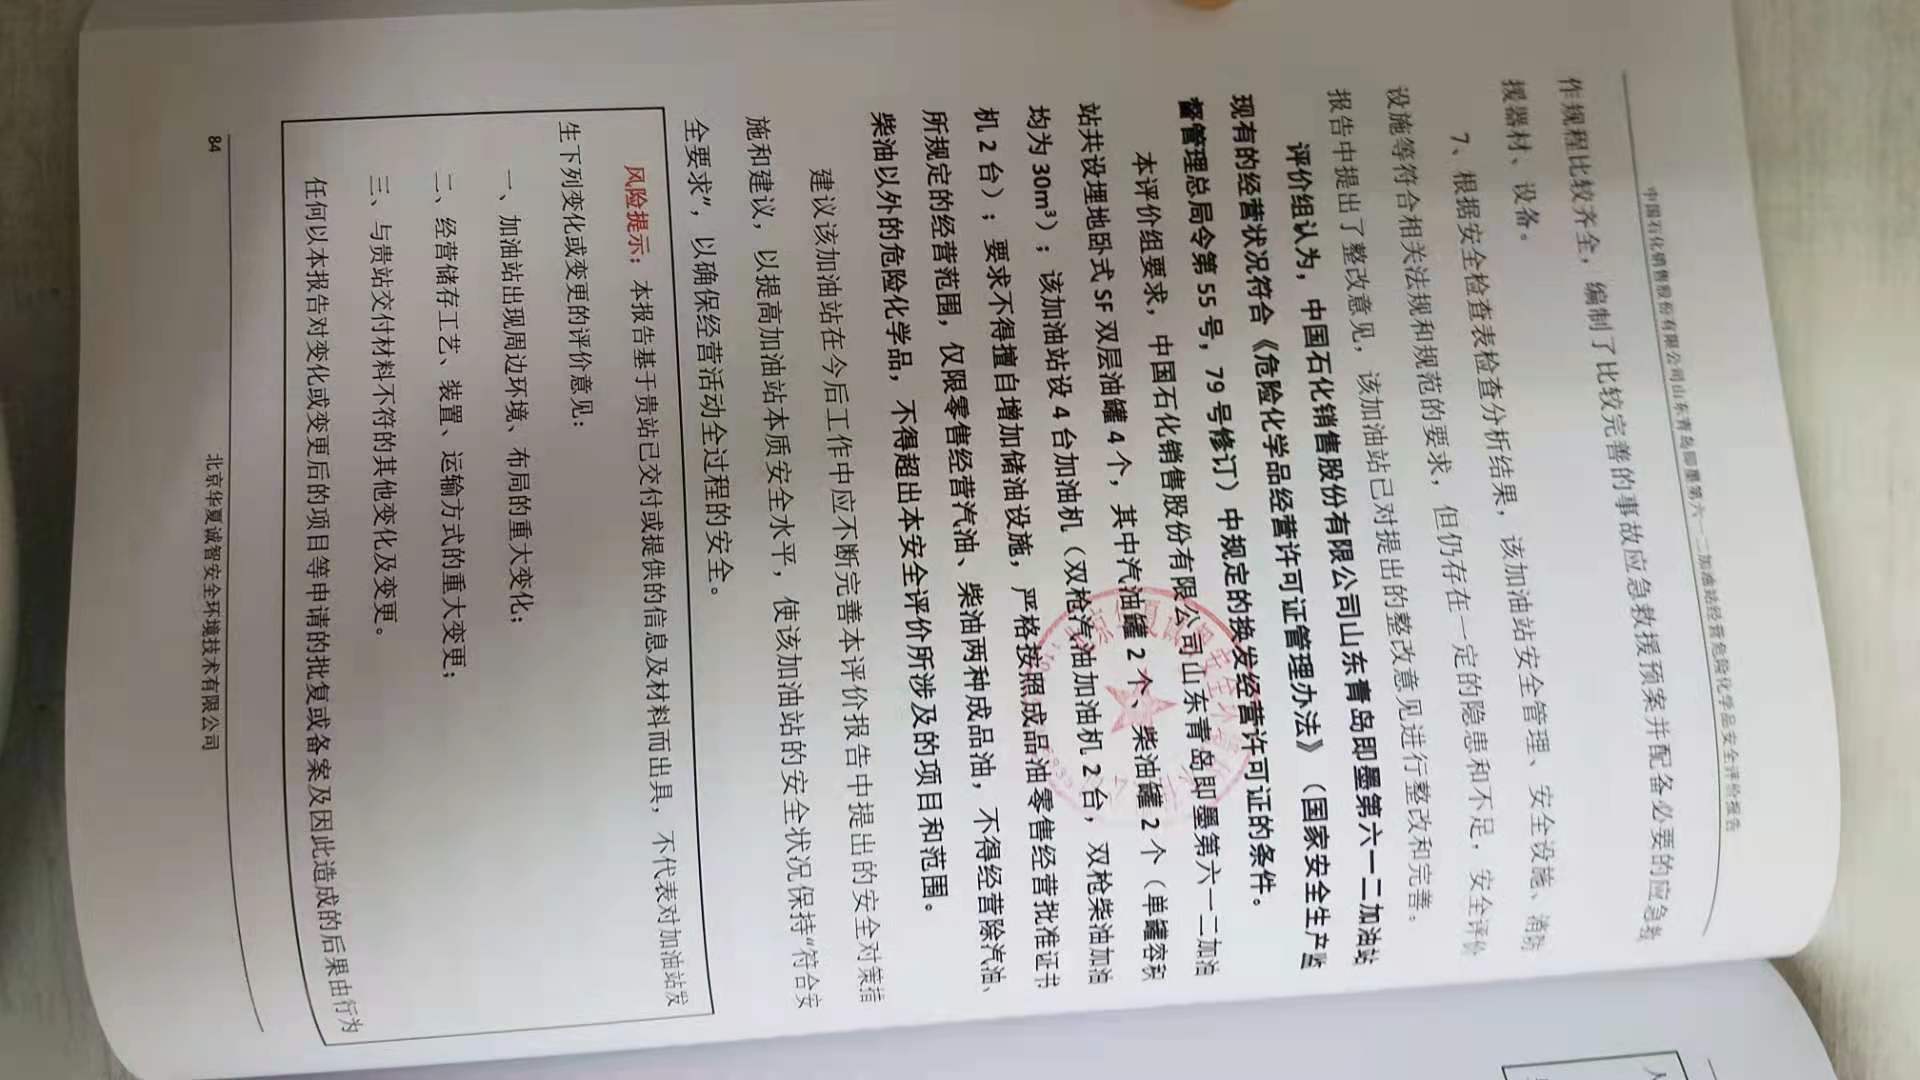 中国石化销售股份有限公司山东青岛即墨第六一二加油站经营危险化学品安全评价报告
作规程比较齐全，编制了比较完善的事故应急救援预案并配备必要的应急救
援器材、设备。
7、根据安全检查表检查分析结果，该加油站安全管理、安全设施、消防
设施等符合相关法规和规范的要求，但仍存在一定的隐患和不足，安全评价
报告中提出了整改意见，该加油站已对提出的整改意见进行整改和完善。
评价组认为，中国石化销售股份有限公司山东青岛即墨第六一二加油站
现有的经营状况符合《危险化学品经营许可证管理办法》（国家安全生产监
督管理总局令第 55 号，79 号修订）中规定的换发经营许可证的条件。
本评价组要求，中国石化销售股份有限公司山东青岛即墨第六一二加油
站共设埋地卧式 SF 双层油罐 4 个，其中汽油罐 2 个、柴油罐 2 个（单罐容积
均为 30m³）；该加油站设 4 台加油机（双枪汽油加油机 2 台，双枪柴油加油
机 2 台）；要求不得擅自增加储油设施，严格按照成品油零售经营批准证书
所规定的经营范围，仅限零售经营汽油、柴油两种成品油，不得经营除汽油、
柴油以外的危险化学品，不得超出本安全评价所涉及的项目和范围。
建议该加油站在今后工作中应不断完善本评价报告中提出的安全对策措
施和建议，以提高加油站本质安全水平，使该加油站的安全状况保持“符合安
全要求”，以确保经营活动全过程的安全。
风险提示：本报告基于贵站已交付或提供的信息及材料而出具，不代表对加油站发
生下列变化或变更的评价意见：
一、加油站出现周边环境、布局的重大变化；
二、经营储存工艺、装置、运输方式的重大变更；
三、与贵站交付材料不符的其他变化及变更。
任何以本报告对变化或变更后的项目等申请的批复或备案及因此造成的后果由行为
84
北京华夏诚智安全环境技术有限公司